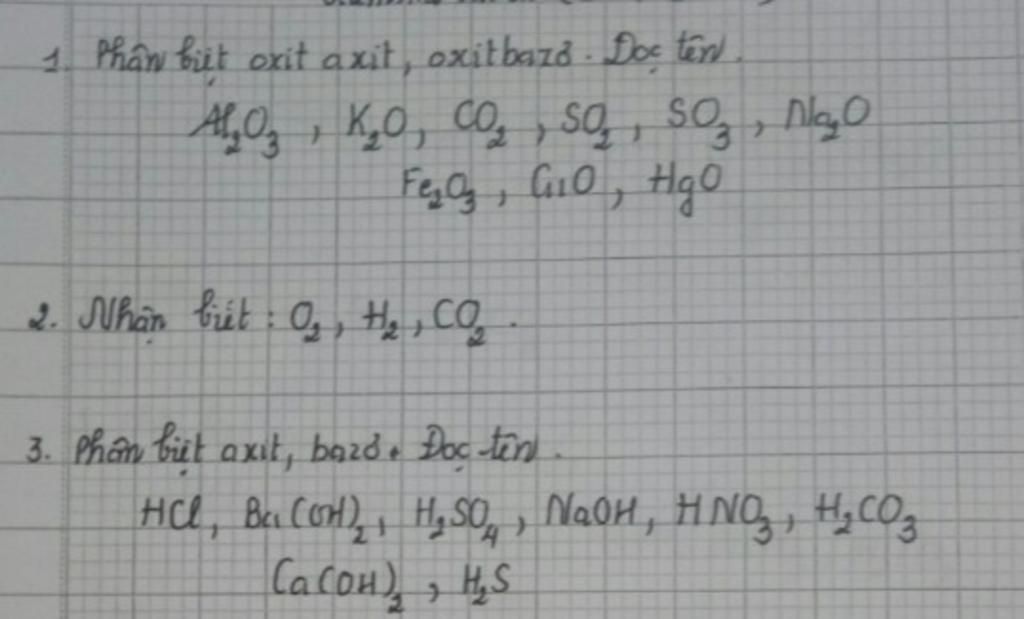 1. Phân biệt oxit axit, oxit bazơ. Đọc tên.
Al₂O₃, K₂O, CO₂, SO₂, SO₃, Na₂O
Fe₂O₃, CuO, HgO
2. Nhận biết: O₂, H₂, CO₂.
3. Phân biệt axit, bazơ. Đọc tên.
HCl, Ba(OH)₂, H₂SO₄, NaOH, HNO₃, H₂CO₃
Ca(OH)₂, H₂S